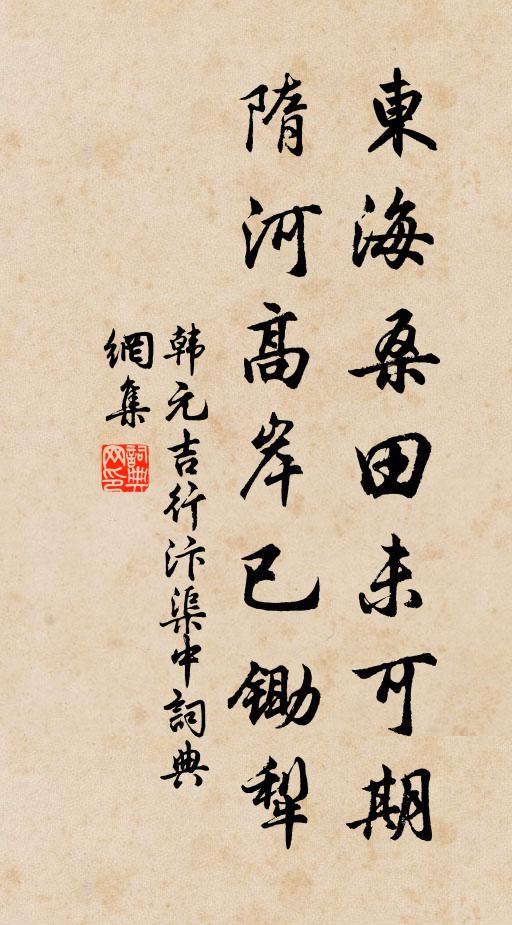 東海桑田未可期
隋河高岸已鋤犁
韩元吉行汴渠中詞典
網集
詞典
网印